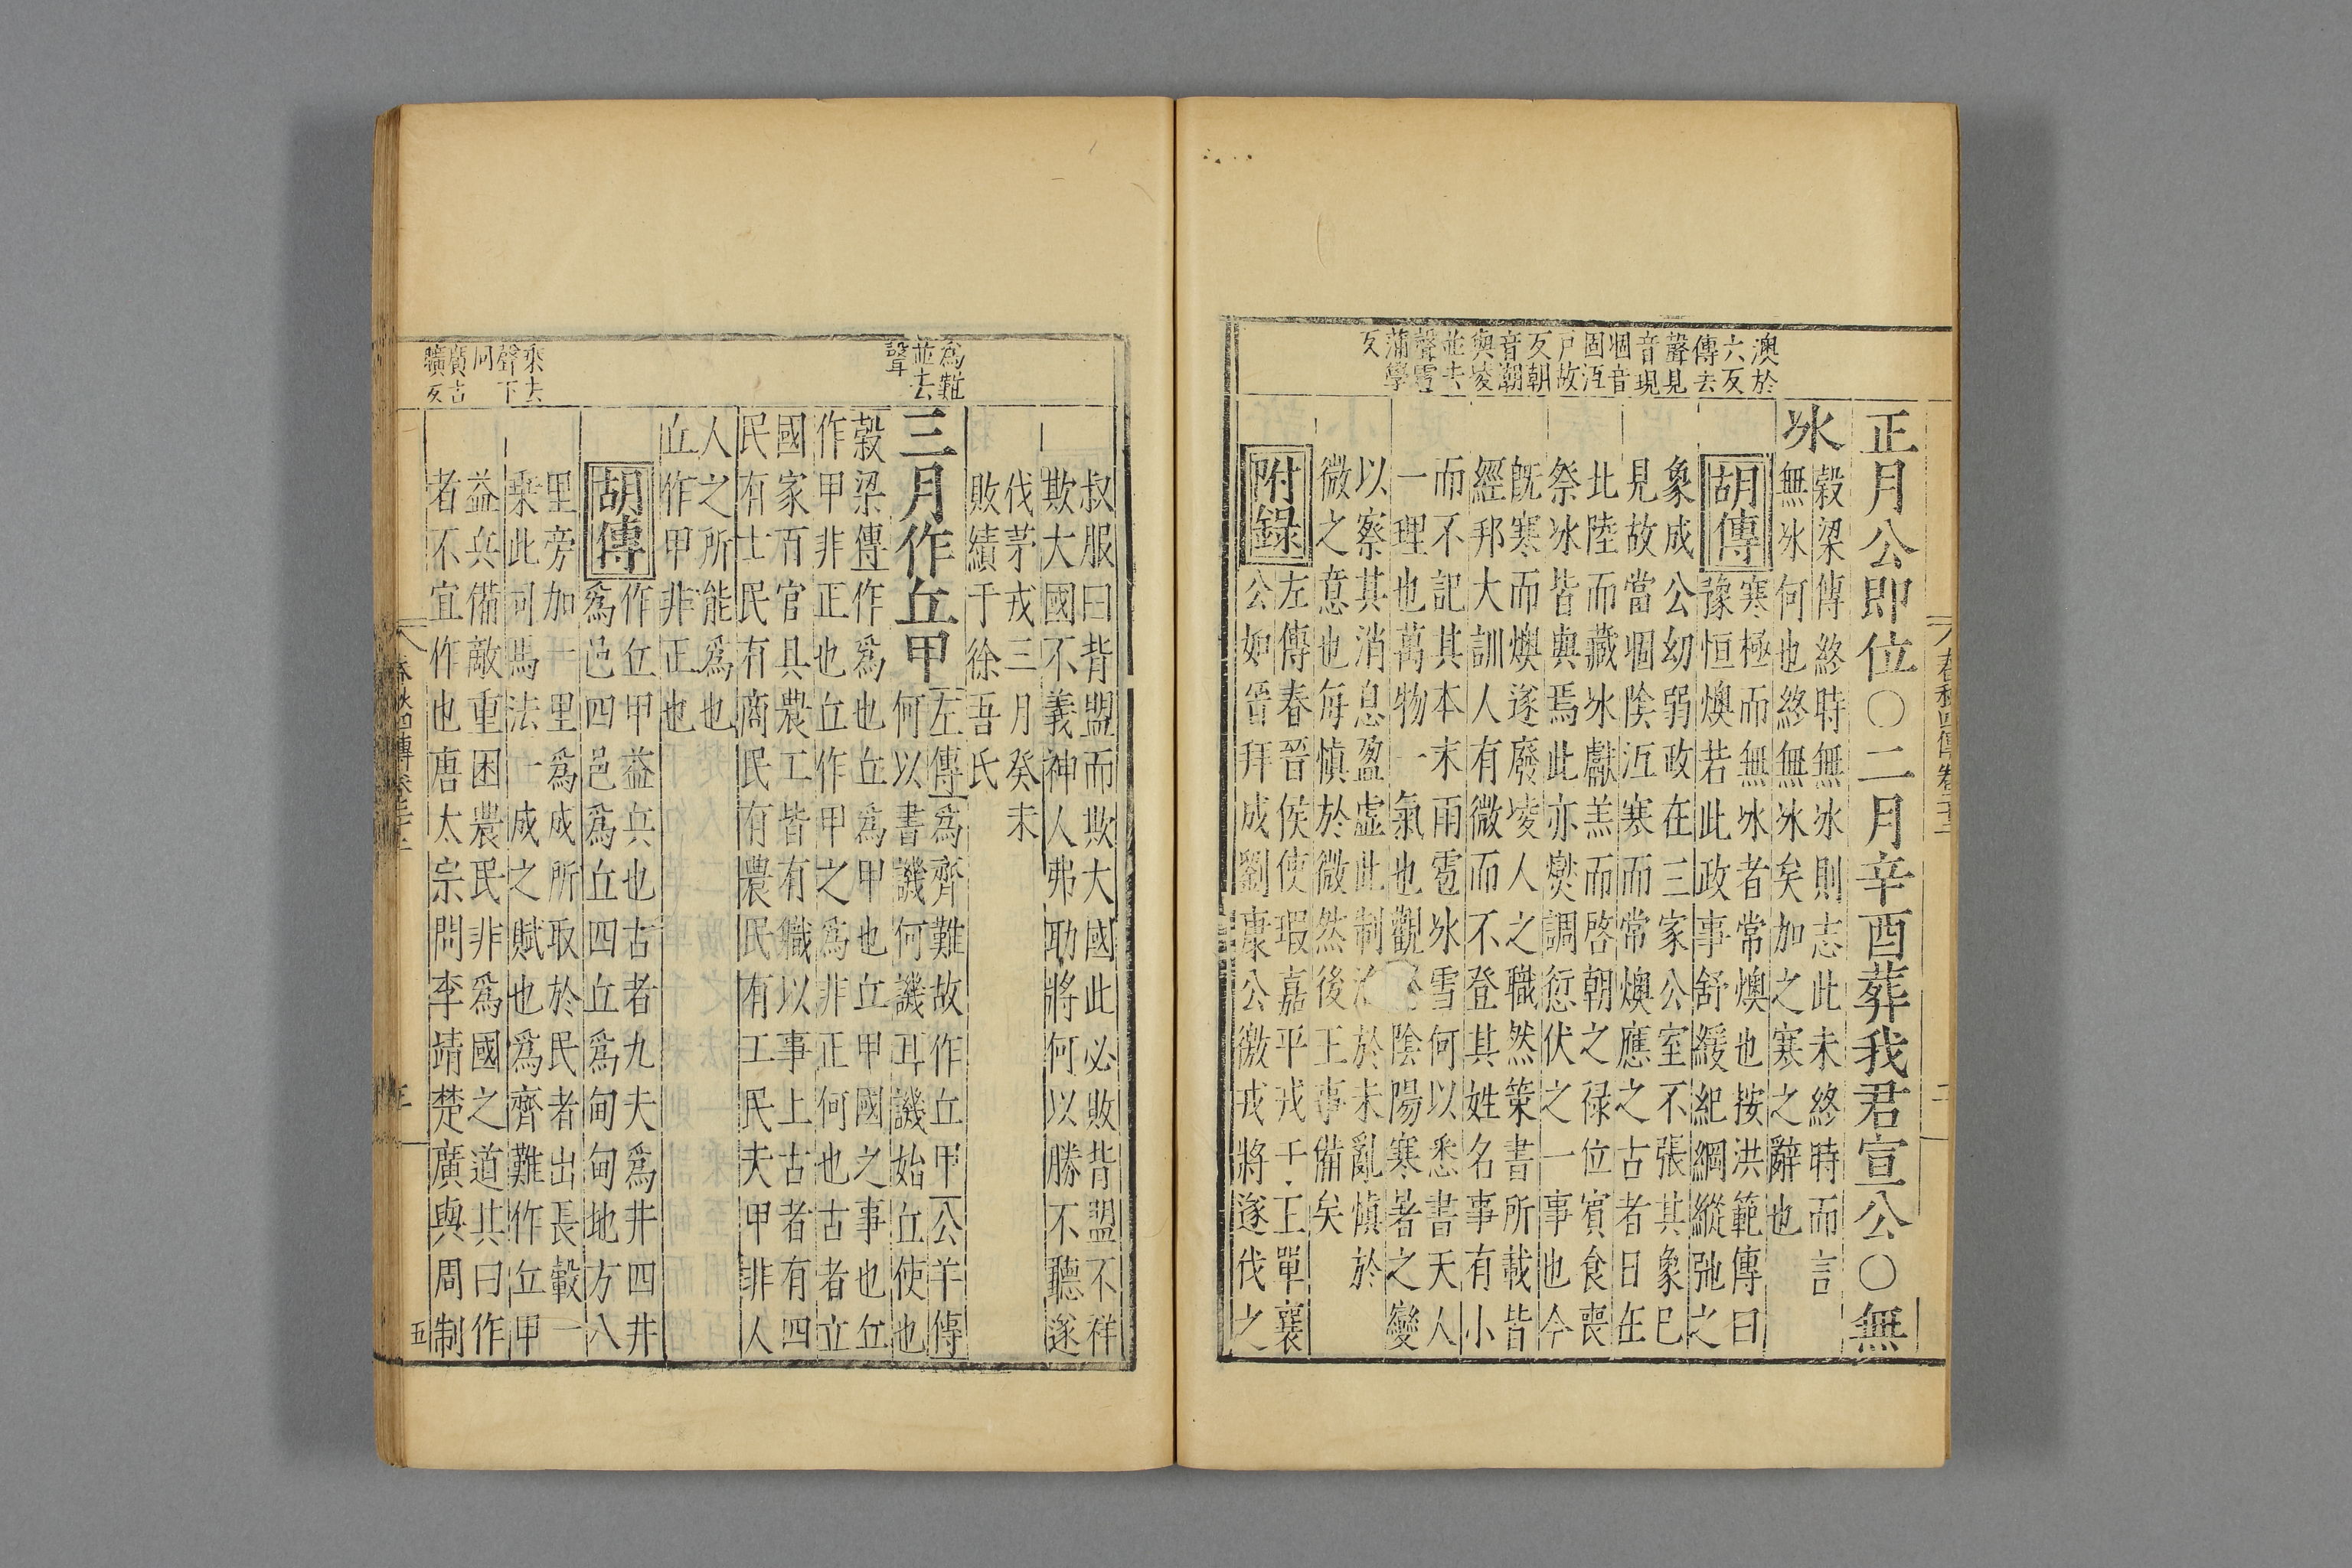 澳於
六反
傳去
聲見
音現
凅音
固沍
戸故
反朝
音潮
與淩
並去
聲雹
蒲學
反
正月公即位○二月辛酉葬我君宣公○無
冰
穀梁傳終時無冰則志此未終時而言
無冰何也終無冰矣加之寒之辭也
胡傳
寒極而無冰者常燠也按洪範傳曰
豫恒燠若此政事舒緩紀綱縱弛之
象成公幼弱政在三家公室不張其象已
見故當凅陰沍寒而常燠應之古者日在
北陸而藏冰獻羔而啓朝之禄位賓食喪
祭冰皆與焉此亦爕調愆伏之一事也今
旣寒而燠遂廢淩人之職然策書所載皆
經邦大訓人有微而不登其姓名事有小
而不記其本末雨雹冰雪何以悉書天人
一理也萬物一氣也觀陰陽寒暑之變
以察其消息盈虛此制於未亂慎於
微之意也每慎於微然後王事備矣
附錄
左傳春晉侯使瑕嘉平戎于王單襄
公如晉拜成劉康公徼戎將遂伐之
春秋四傳卷二十二
二
爲難
並去
聲
乘去
聲下
同
廣古
曠反
叔服曰背盟而欺大國此必敗背盟不祥
欺大國不義神人弗助將何以勝不聽遂
伐茅戎三月癸未
敗績于徐吾氏
三月作丘甲
左傳爲齊難故作丘甲公羊傳
何以書譏何譏耳譏始丘使也
穀梁傳作爲也丘爲甲也丘甲國之事也丘
作甲非正也丘作甲之爲非正何也古者立
國家百官具農工皆有職以事上古者有四
民有士民有商民有農民有工民夫甲非人
人之所能爲也
丘作甲非正也
胡傳
作丘甲益兵也古者九夫爲井四井
爲邑四邑爲丘四丘爲甸甸地方八
里旁加一里爲成所取於民者出長轂一
乘此司馬法一成之賦也爲齊難作丘甲
益兵備敵重困農民非爲國之道其曰作
者不宜作也唐太宗問李靖楚廣與周制
五